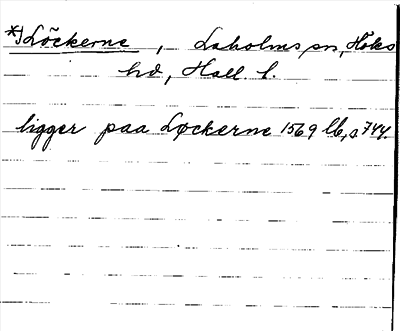 *Löckerne, Laholms sn, Höks
hd, Hall. l.
ligger paa Løckerne 1569 lb, s 744.